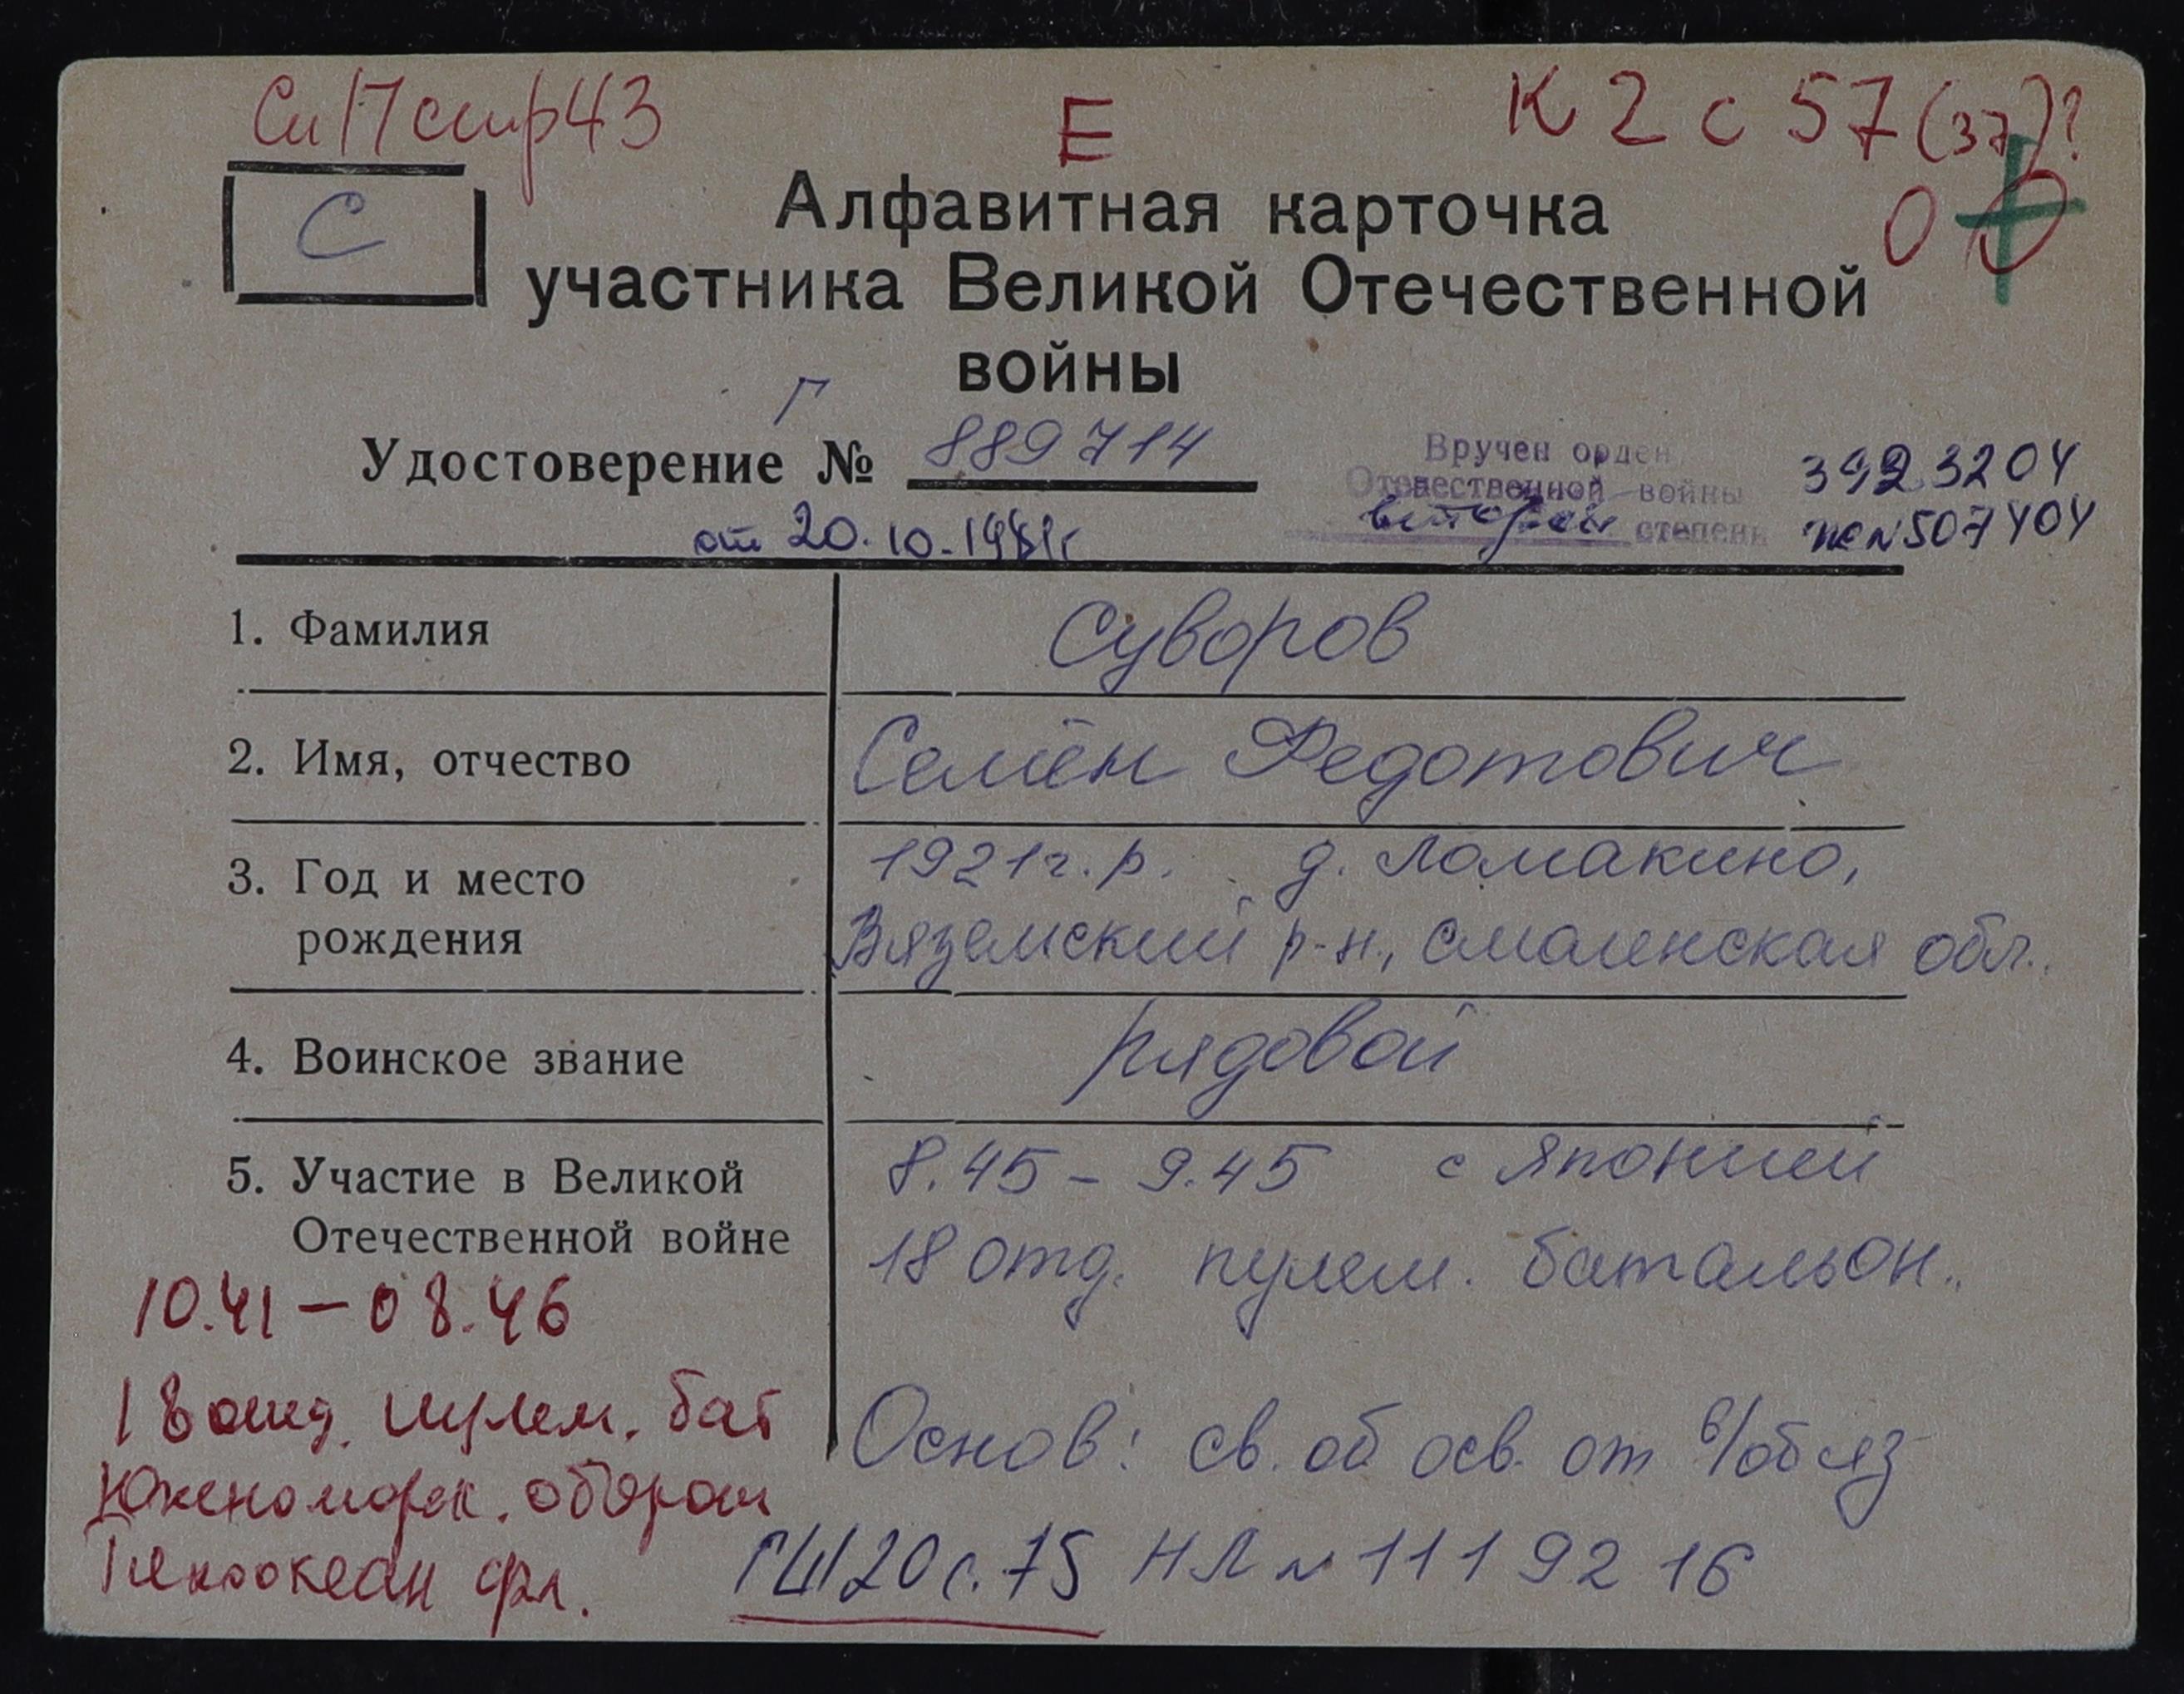 Си П стр 43
Е
К 2 с 57 (37)?
С
Алфавитная карточка
участника Великой Отечественной
войны
Г
Удостоверение № 889714
от 20.10.1981г
Вручен орден
Отечественной войны
второй степени
3923204
№507404
1. Фамилия
Суворов
2. Имя, отчество
Семён Федотович
3. Год и место
рождения
1921 г.р. д. Ломакино,
Вяземский р-н, Смоленская обл.
4. Воинское звание
рядовой
5. Участие в Великой
Отечественной войне
8.45 – 9.45 с Японией
18 отд. пулем. батальон.
10.41 – 08.46
18 отд. пулем. бат
Южноморск. оборон
Тихоокеан фл.
Основ: св. об осв. от в/обяз
ГШ 20 с. 75 НЛ № 1119216